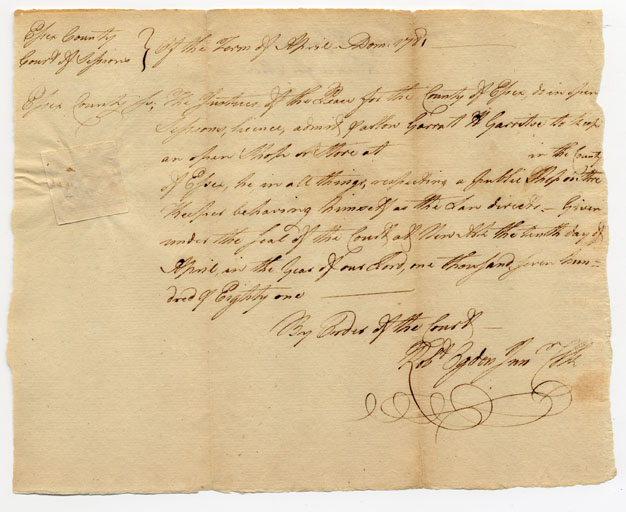 Essex County
Court of Sessions } of the Term of April Dom: 1781
Essex County Ss; The Justices of the Peace for the County of Essex do in open
Sessions, licence, admit & allow Garrat to keep
an open Shop or Store at in the County
of Essex, he in all things, respecting a publick Shop or Store
Keeper behaving himself as the Law directs. — Given
under the Seal of the Court at New Ark the tenth day of
April, in the Year of our Lord, one thousand, seven hun-
dred & Eighty one —
By Order of the Court —
Robt. Ogden Junr. Clk